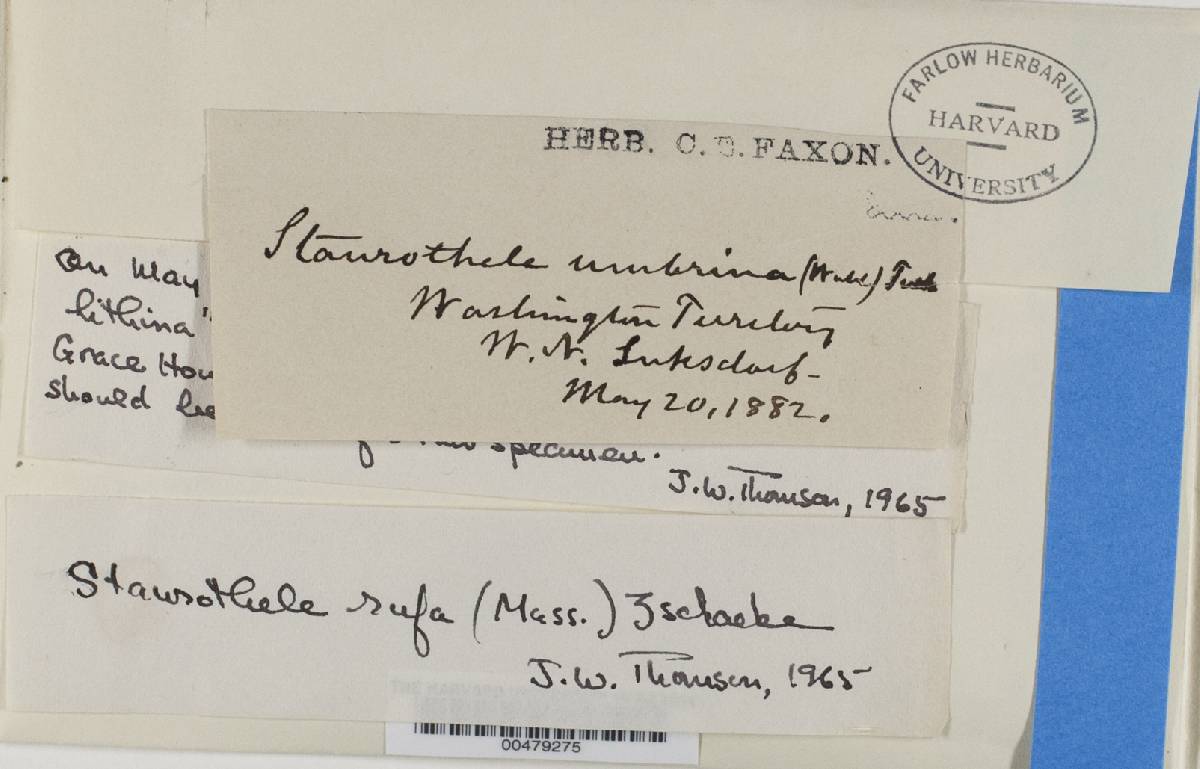 FARLOW HERBARIUM
HARVARD
UNIVERSITY
HERB. C. E. FAXON.
Staurothele umbrina (Wahl) Tuck
Washington Territory
W. N. Suksdorf-
May 20, 1882.
On May
lithina"
Grace How
should be
specimen.
J.W. Thomson, 1965
Staurothele rufa (Mass.) Zschacke
J.W. Thomson, 1965
00479275